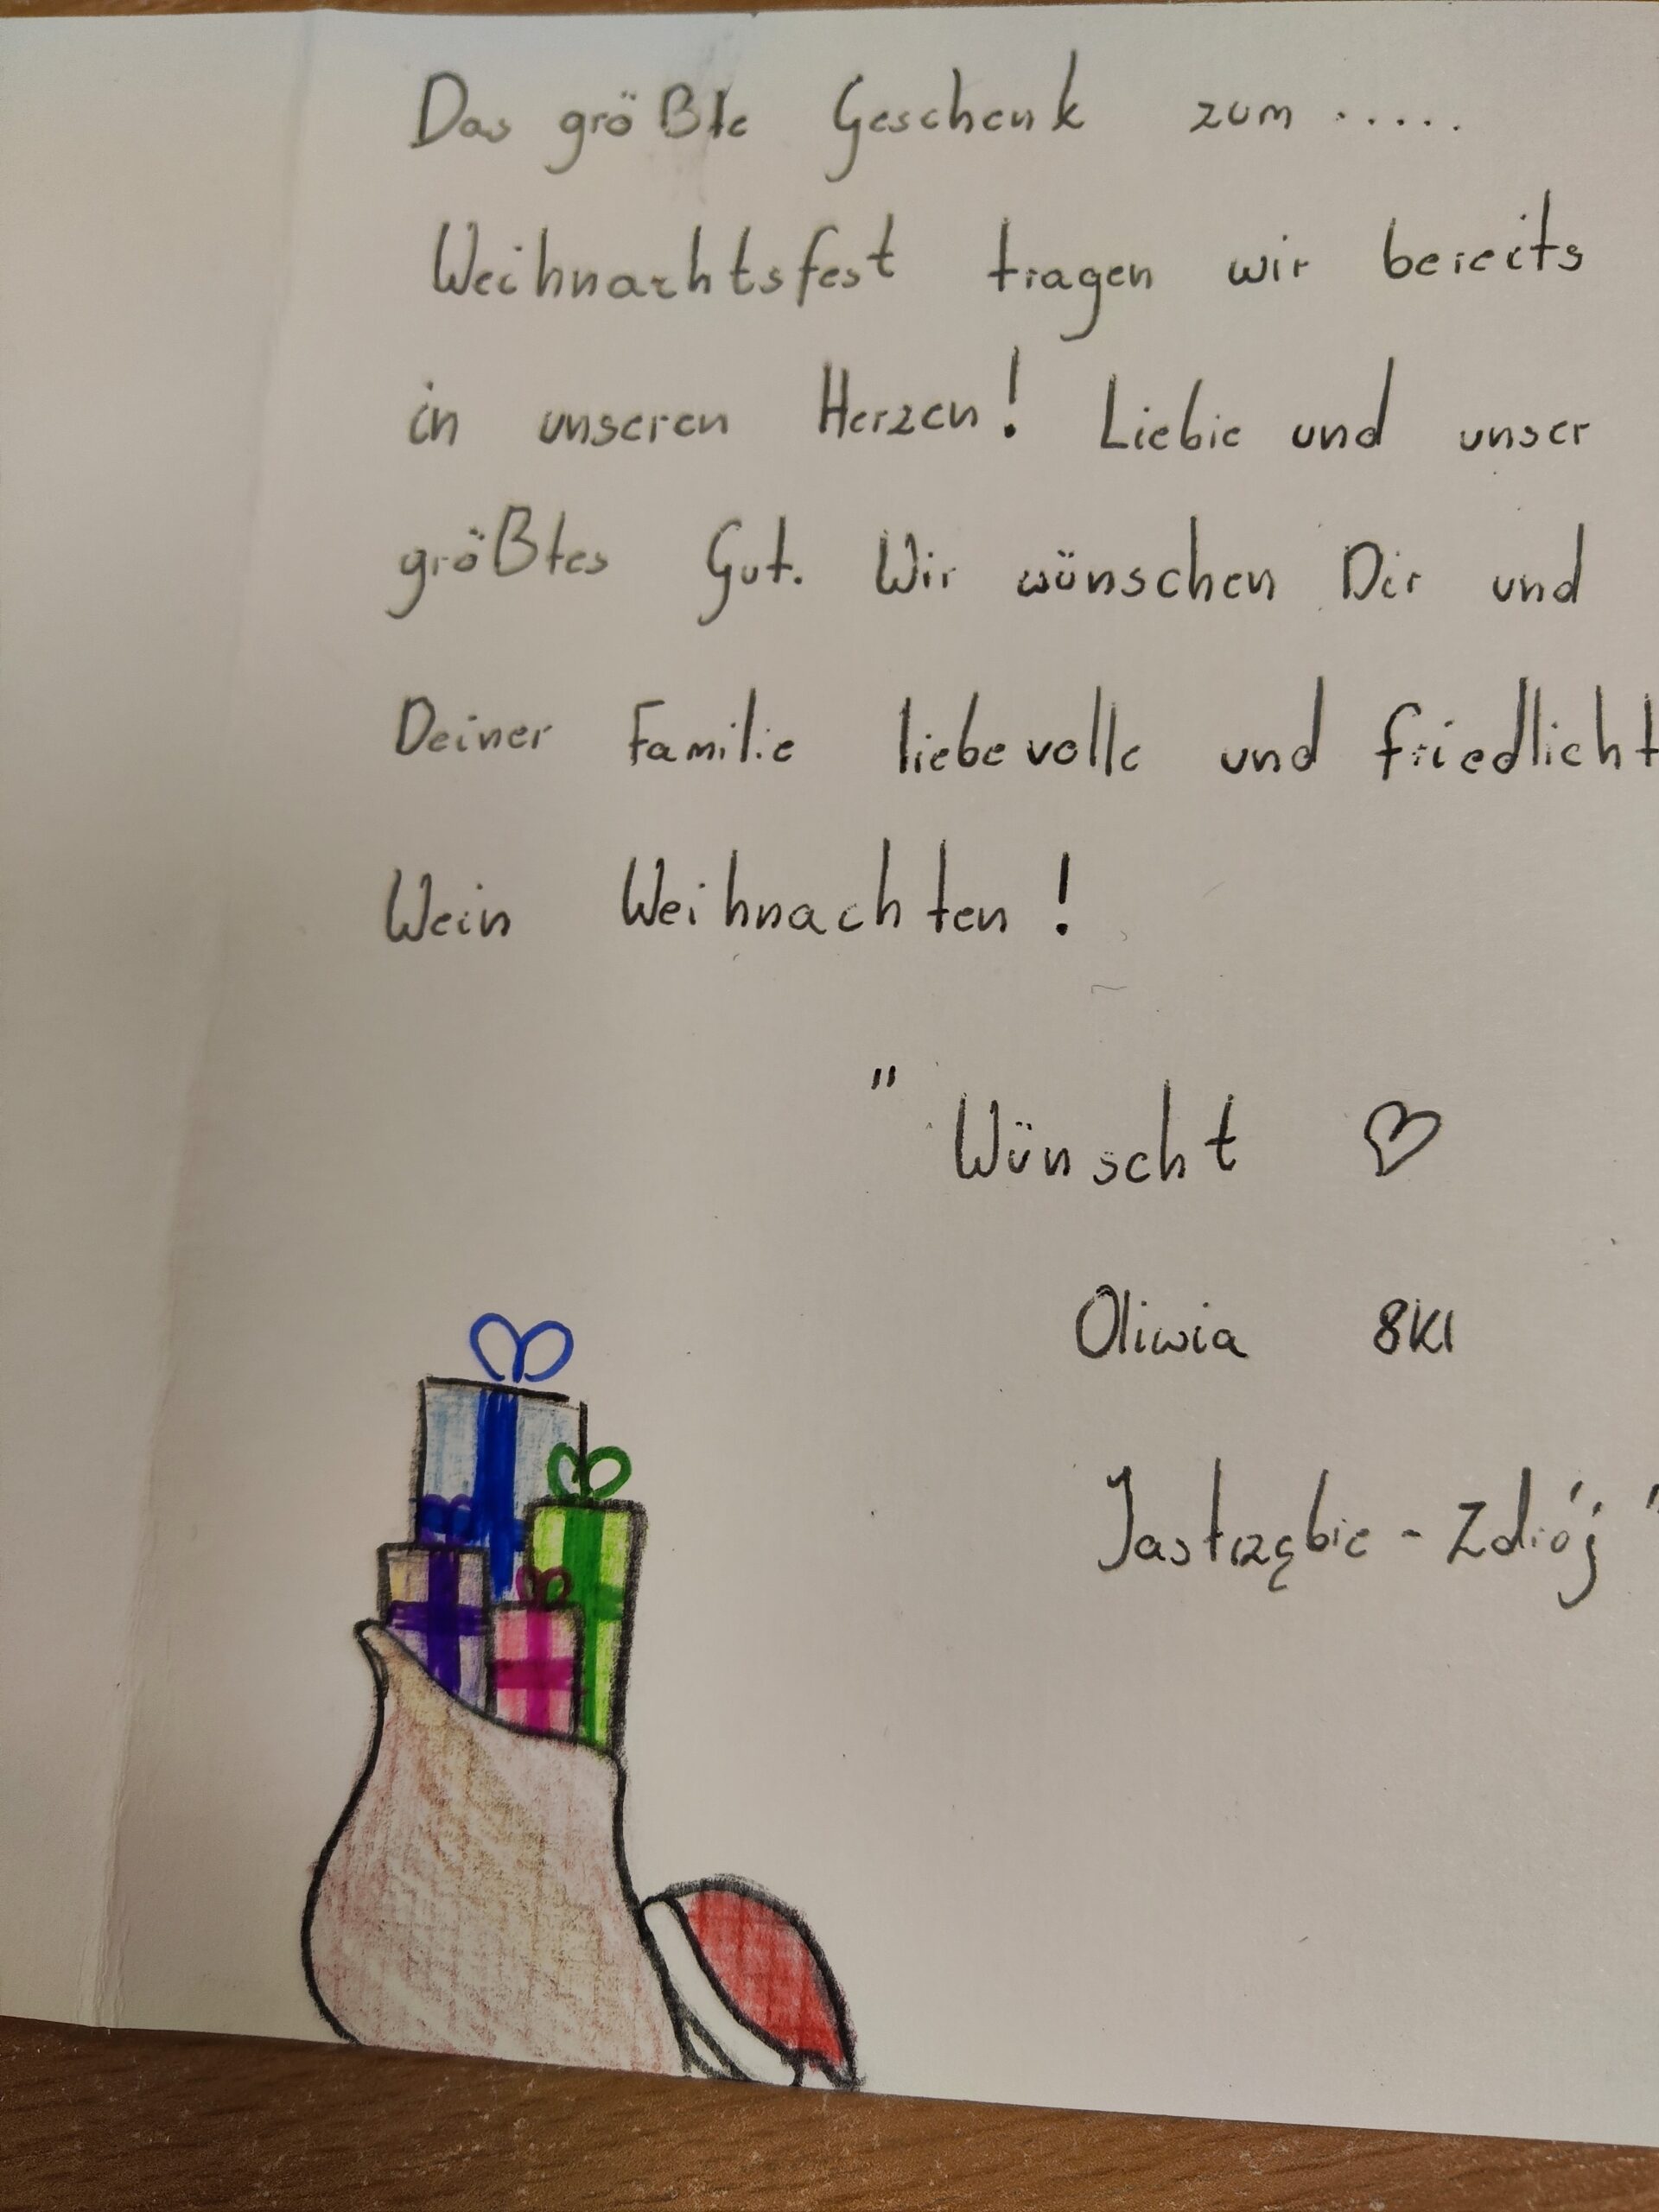 Das größte Geschenk zum .....
Weihnachtsfest tragen wir bereits
in unseren Herzen! Liebie und unser
größtes Gut. Wir wünschen Dir und
Deiner Familie liebevolle und friedlicht
Wein Weihnachten!
" Wünscht ♡
Oliwia 8Kl
Jastrzębie - Zdrój "